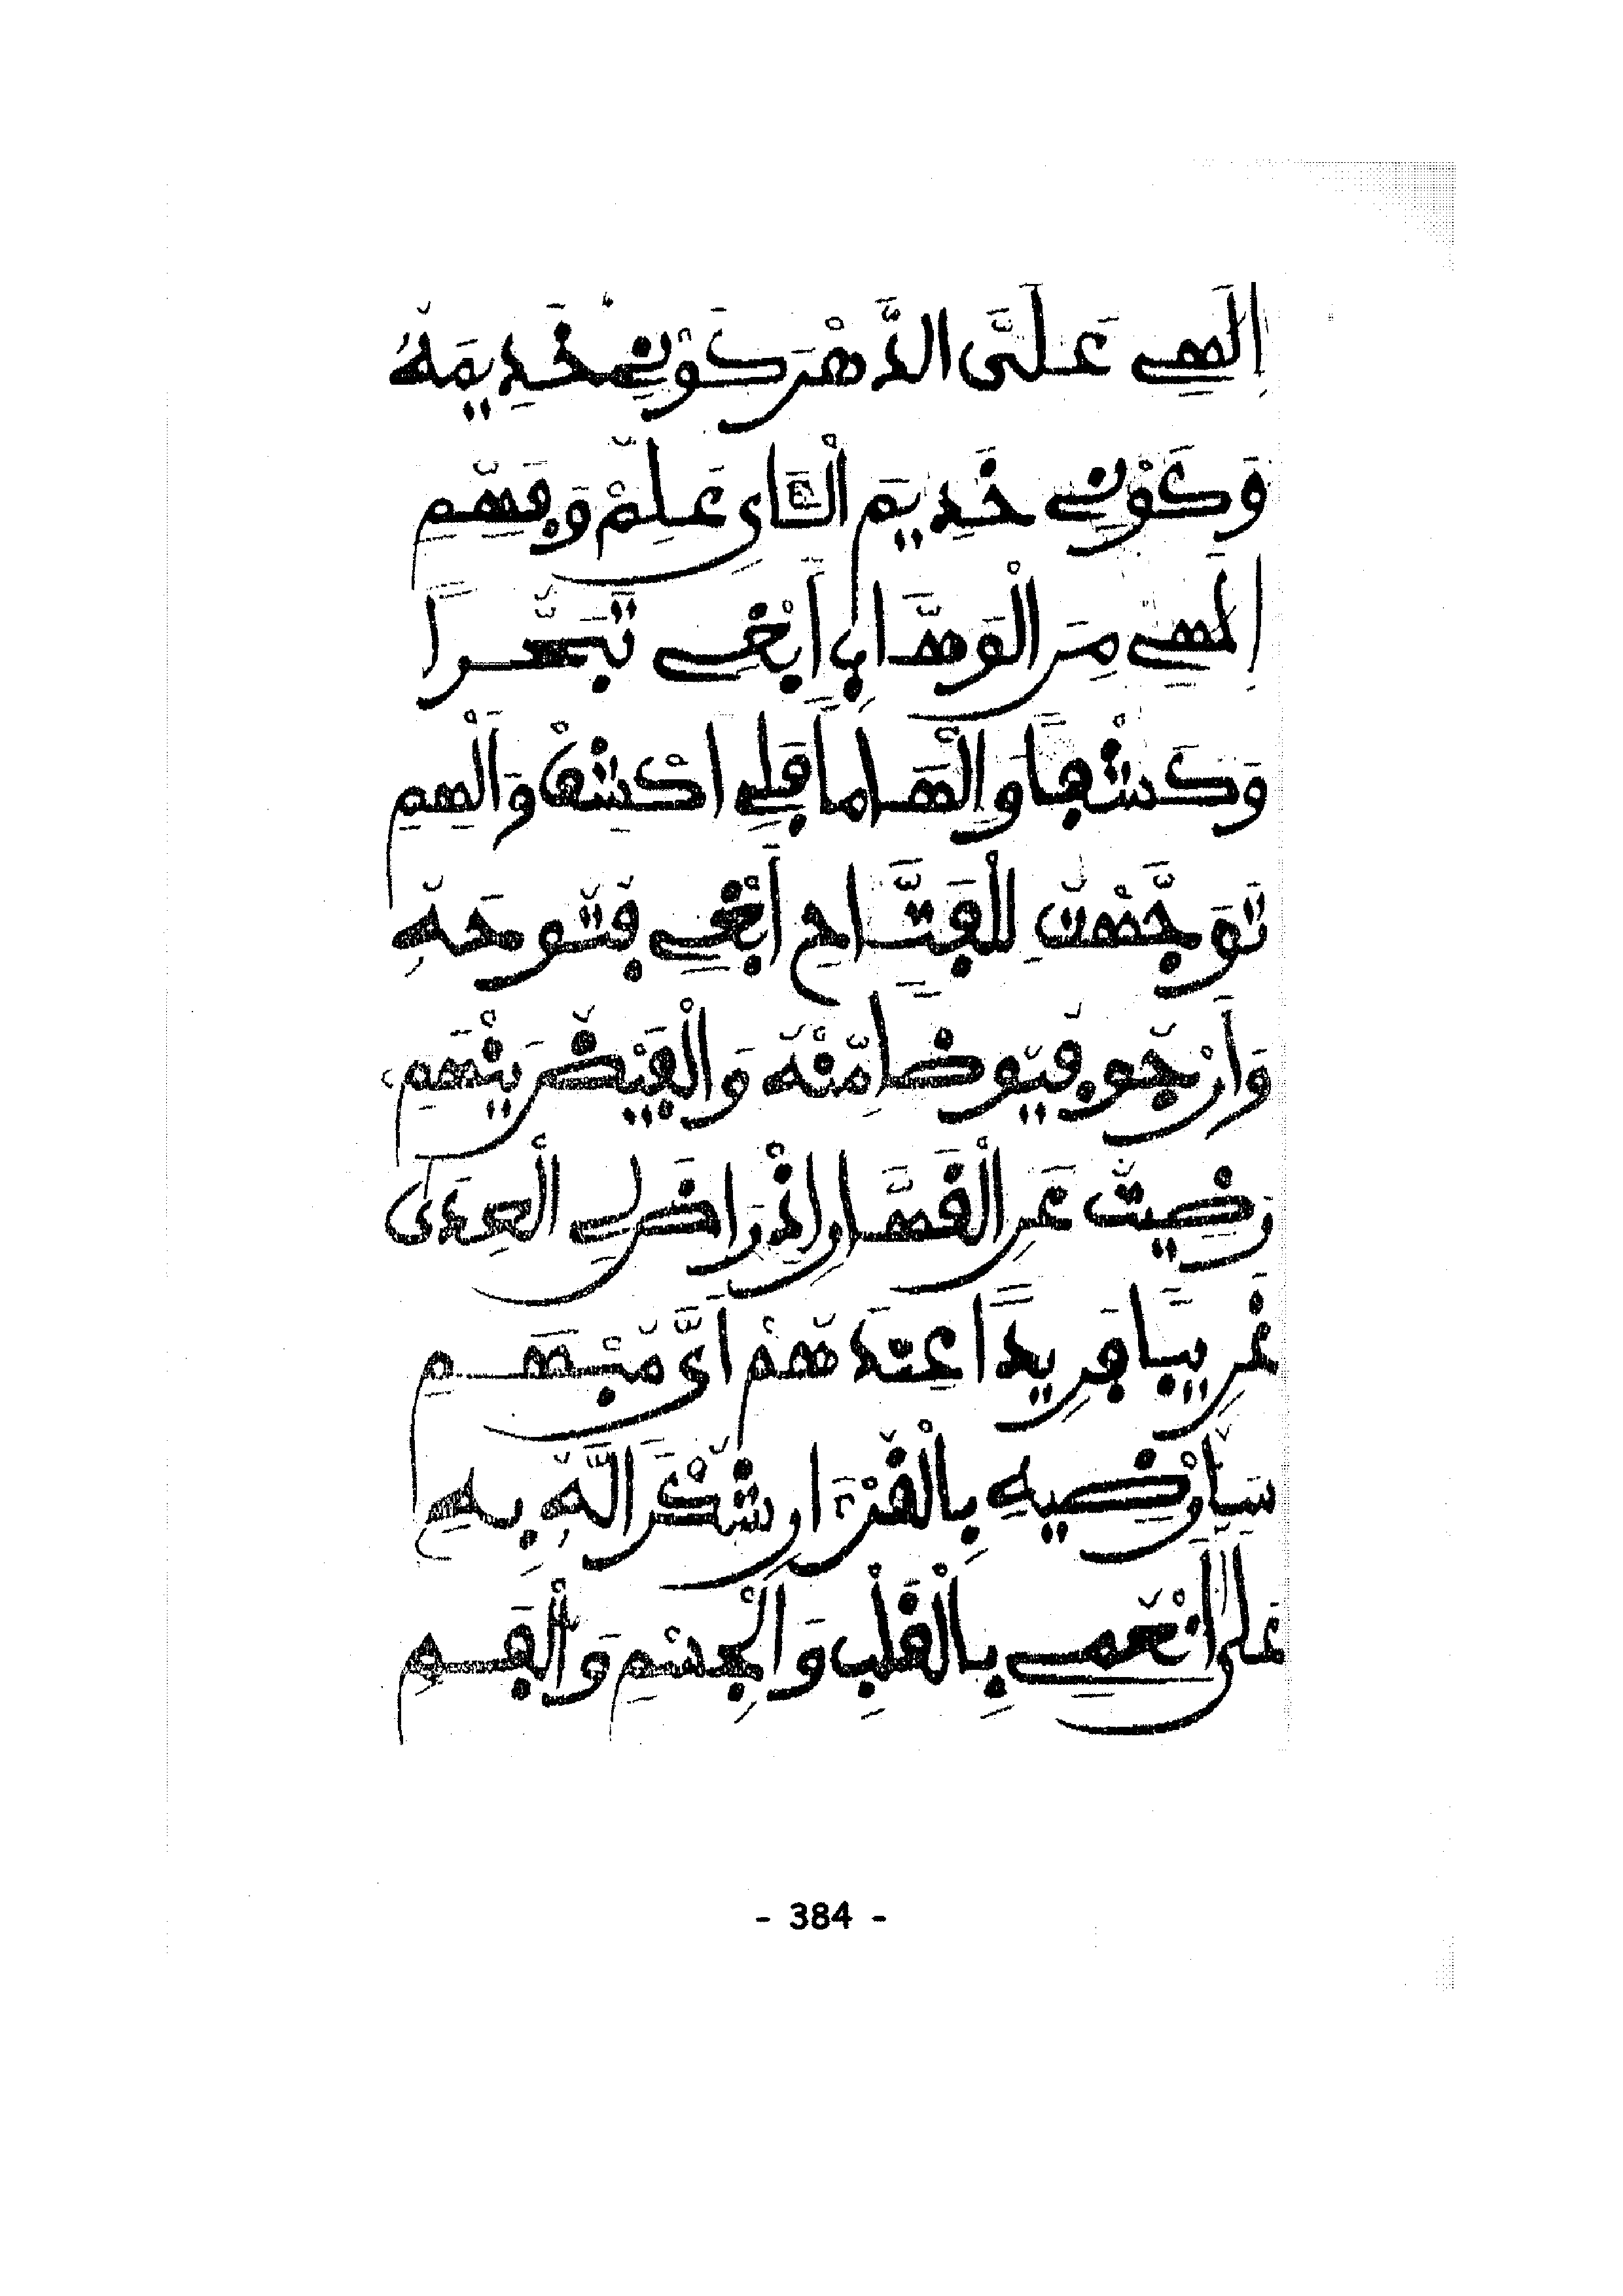 إِلَهِي عَلَى الدَّهْرِ كَوْنِي خَدِيمَهُ
وَكَوْنِي خَدِيمَ عَلِّمْ وَفَهِّمِ
إِلَهِي مِنَ الْوَهَّابِ أَبْغِي تَبَحُّرًا
وَكَشْفًا وَإِلْهَامًا فَلِي اكْشِفْ وَأَلْهِمِ
تَوَجَّهْتُ لِلْفَتَّاحِ أَبْغِي فُتُوحَهُ
وَأَرْجُو فُيُوضًا مِّنْهُ وَالْفَيْضُ يَنْهَمِ
رَضِيتُ عَنِ الْقَهَّارِ إِذْ رَاضَ لِي الْعِدَى
غَرِيبًا فَرِيدًا عِنْدَهُمْ أَيَّ مُبْهَمِ
سَأُرْضِيهِ بِالْقُرْءَانِ شُكْرَ الَّهِ بِهِ
عَلَيَّ بِالْقَلْبِ وَالْجِسْمِ وَالْفَمِ
- 384 -